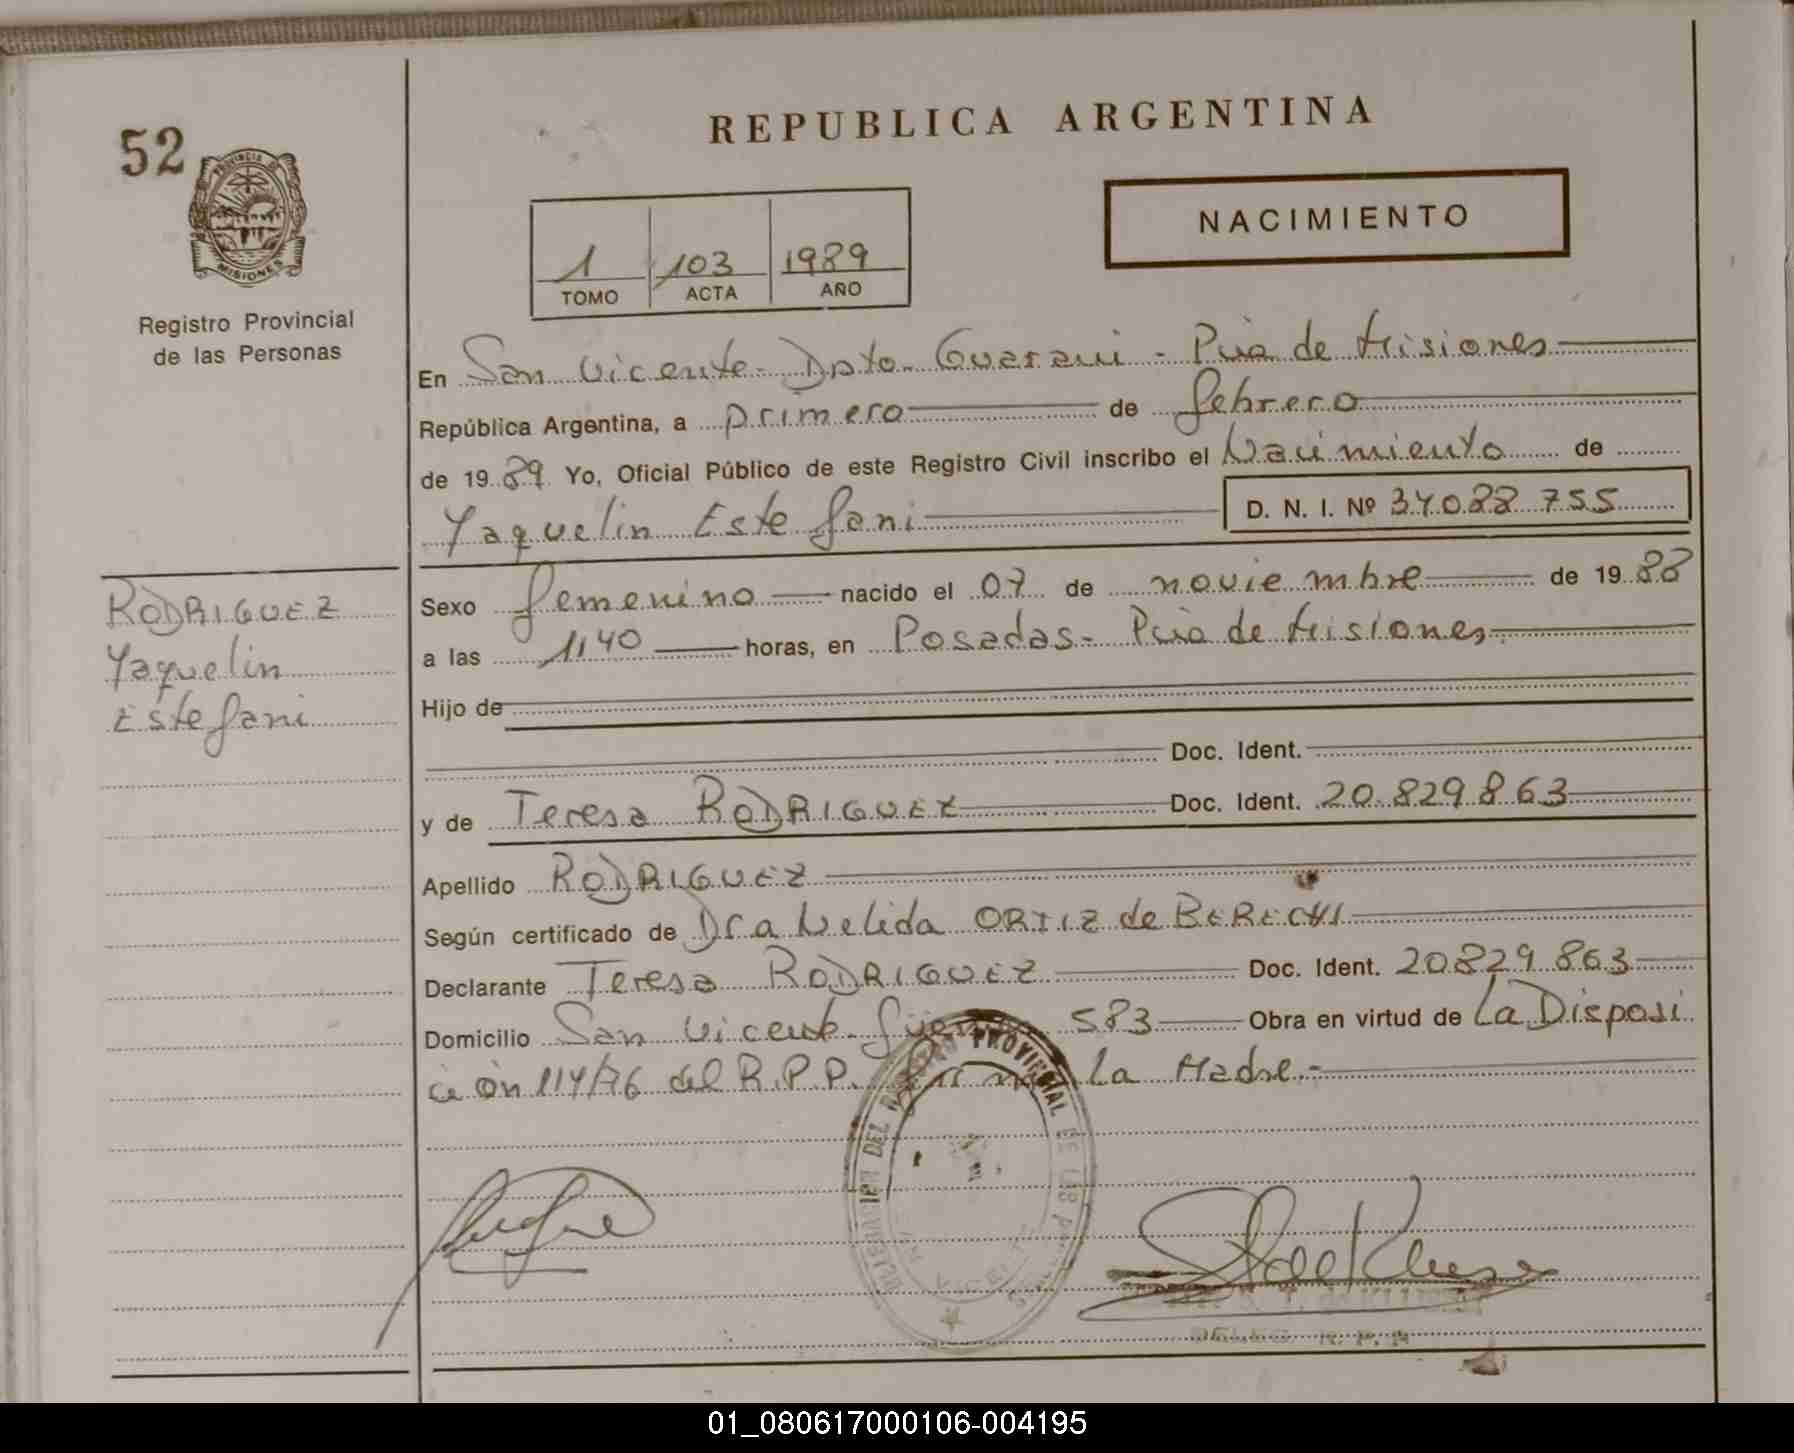 52
PROVINCIA DE
MISIONES
Registro Provincial
de las Personas
REPUBLICA ARGENTINA
NACIMIENTO
1 103 1989
TOMO ACTA AÑO
En San Vicente - Dpto. Guarani - Pcia de Misiones
República Argentina, a primero de febrero
de 1989 Yo, Oficial Público de este Registro Civil inscribo el Nacimiento de
Yaquelin Estefani D. N. I. Nº 34.088.755
Sexo femenino nacido el 07 de noviembre de 1988
a las 1140 horas, en Posadas - Pcia de Misiones
Hijo de
Doc. Ident.
y de Teresa RODRIGUEZ Doc. Ident. 20.829.863
Apellido RODRIGUEZ
Según certificado de Dra Nelida ORTIZ de BERECHI
Declarante Teresa RODRIGUEZ Doc. Ident. 20829.863
Domicilio San Vicente - 583 Obra en virtud de La Disposi
ción 114/76 del R.P.P. La Madre.-
RODRIGUEZ
Yaquelin
Estefani
DELEGACION DEL REGISTRO PROVINCIAL DE LAS PERSONAS
VICENTE
01_080617000106-004195